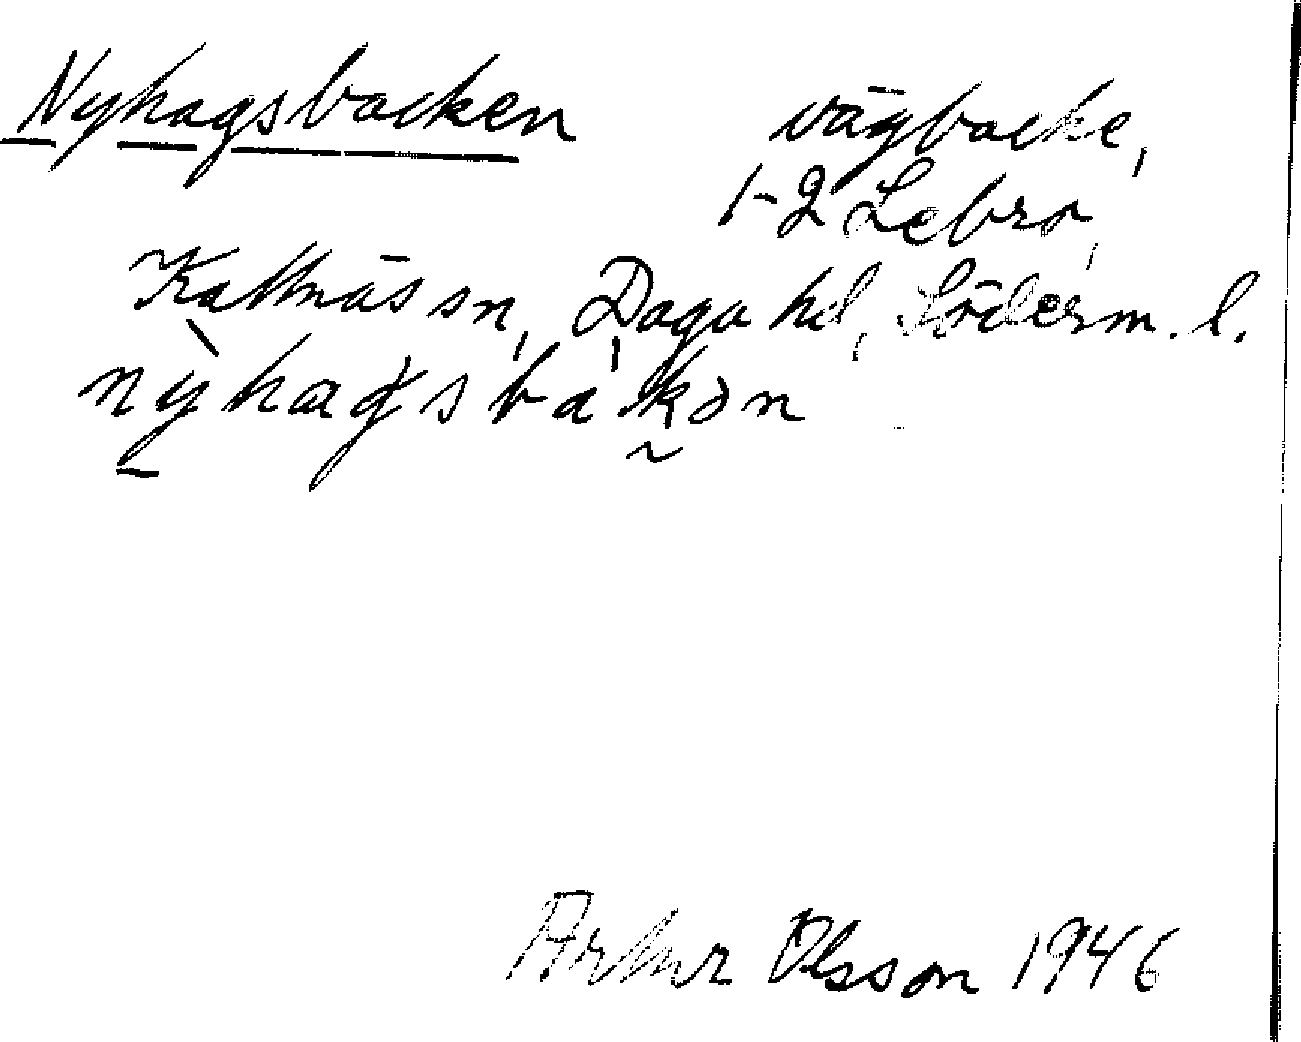 Nyhagsbacken vägbacke,
1-2 Lebro,
Kattnäs sn, Daga hd, Söderm. l.
nỳhagsbákən
Artur Olsson 1946